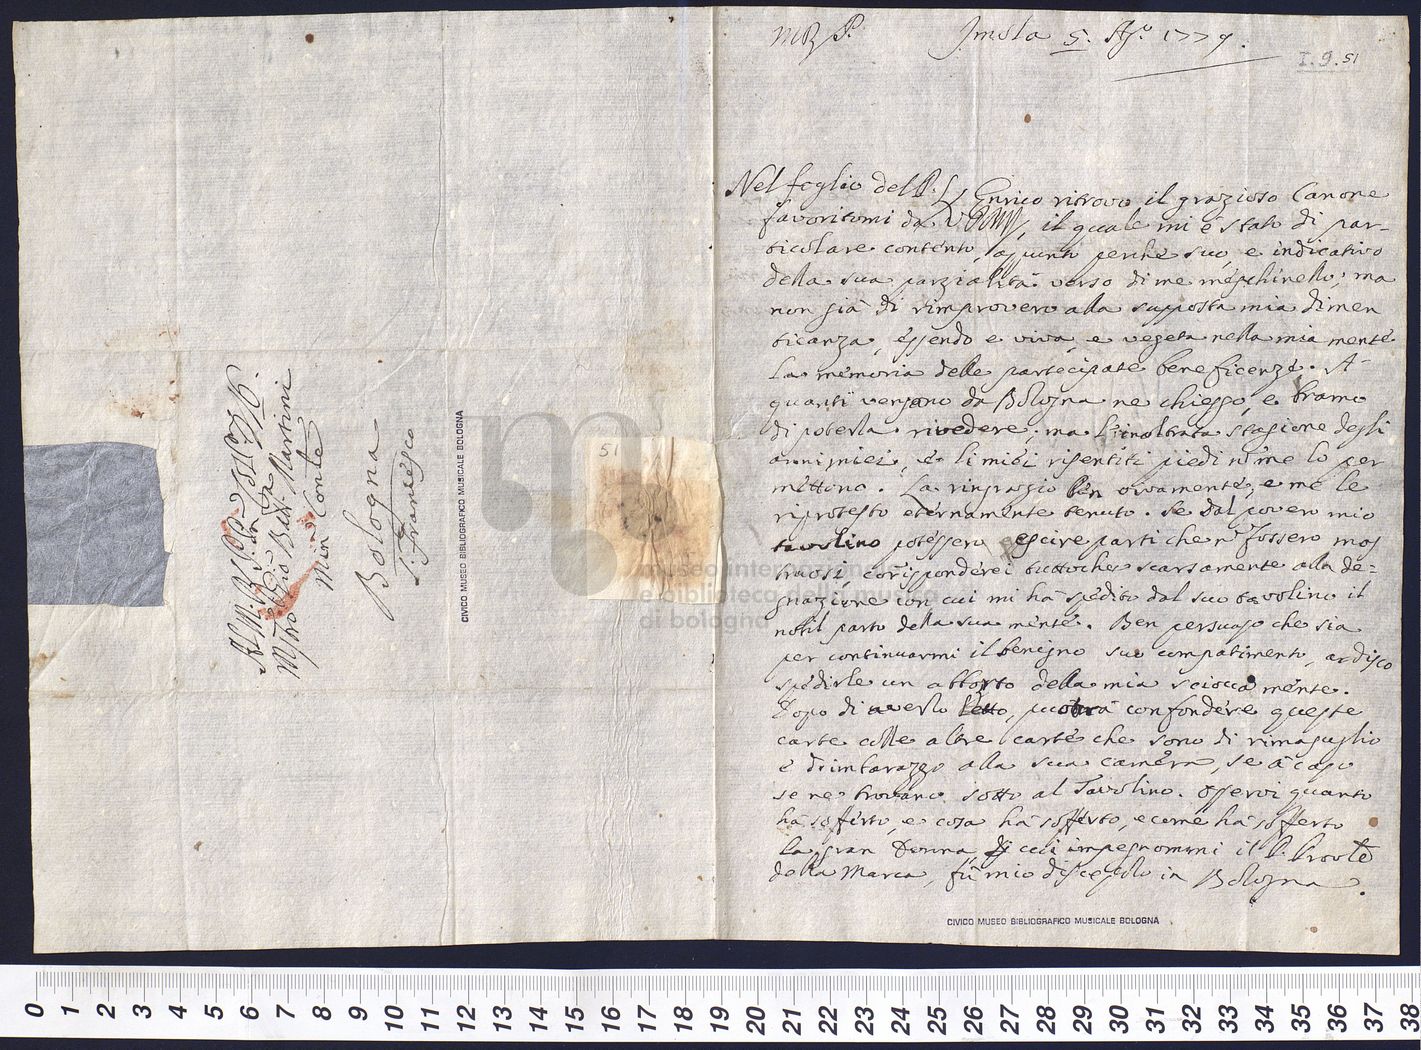 M R P. Imola 5. Ag.o 1779.
I.9.51
Nel foglio del P. Enrico ritrovo il grazioso Canone
favoritomi da, il quale mi è stato di par-
ticolare contento, apunto perche suo, e indicativo
della sua parzialità verso di me meschinello; ma
non già di rimprovero alla supposta mia dimen
ticanza, essendo e viva, e vegeta nella mia mente
la memoria delle partecipate beneficenze. A
quanti vengano da Bologna ne chieggo, e bramo
di poterla rivedere; ma l'inoltrata stagione degli
anni miei, e li miei risentiti piedi nol me lo per
mettono. La ringrazio ben vivamente, e me le
riprotesto eternamente tenuto. Se dal povero mio
tavolino potessero escire parti che n. fossero mos
truosi, corrisponderei tuttoche scarsamente alla de=
gnazione con cui mi hà spedito dal suo tavolino il
nobil parto della sua mente. Ben persuaso che sia
per continuarmi il benigno suo compatimento, ardisco
spedirle un abborto della mia sciocca mente.
Dopo di averlo letto, puotrà confondere queste
carte colle altre carte che sono di rimasuglio
e d'imbarazzo alla sua camera, se a caso
se ne trovano sotto al Tavolino. Osservi quanto
hà sofferto, e cosa hà sofferto, e come hà sofferto
la gran Donna, di cui impegnommi il P. Provle
della Marca, fù mio discepolo in Bologna.
CIVICO MUSEO BIBLIOGRAFICO MUSICALE BOLOGNA
Al M. R. P.
Mro Gio Batt. Martini
Min Conle
Bologna
S. Francesco
CIVICO MUSEO BIBLIOGRAFICO MUSICALE BOLOGNA
51
museo internazionale
e biblioteca della musica
di bologna
0 1 2 3 4 5 6 7 8 9 10 11 12 13 14 15 16 17 18 19 20 21 22 23 24 25 26 27 28 29 30 31 32 33 34 35 36 37 38